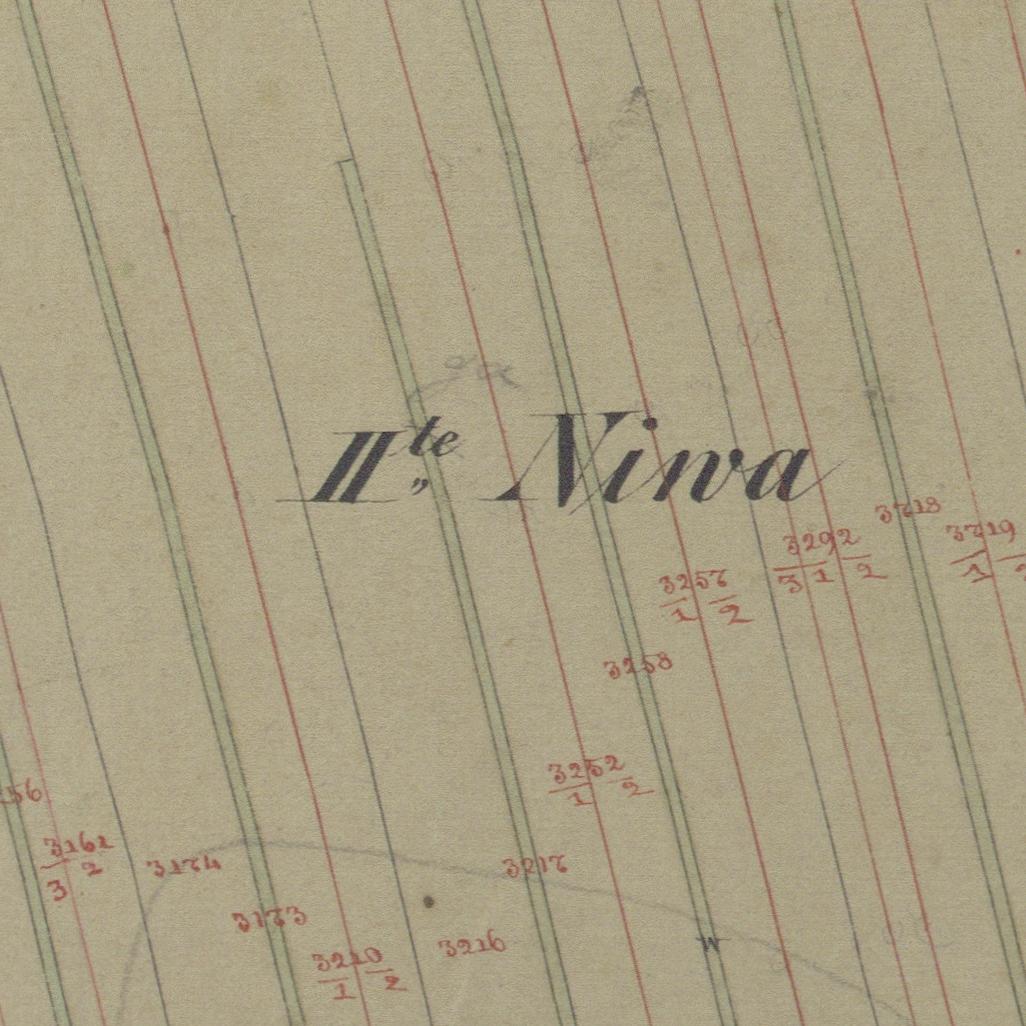 IIte Niwa
3718
3719
1
3292
3 1 2
3257
1 2
3258
3252
1 2
56
3161
3 2
3174
3217
3173
3216
3210
1 2
W